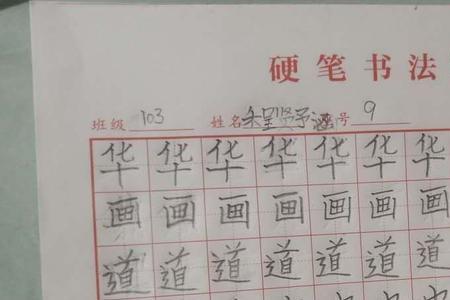 硬笔书法
班级 103 姓名 号 9
华 华 华 华 华 华 华
画 画 画 画 画 画 画
道 道 道 道 道 道 道